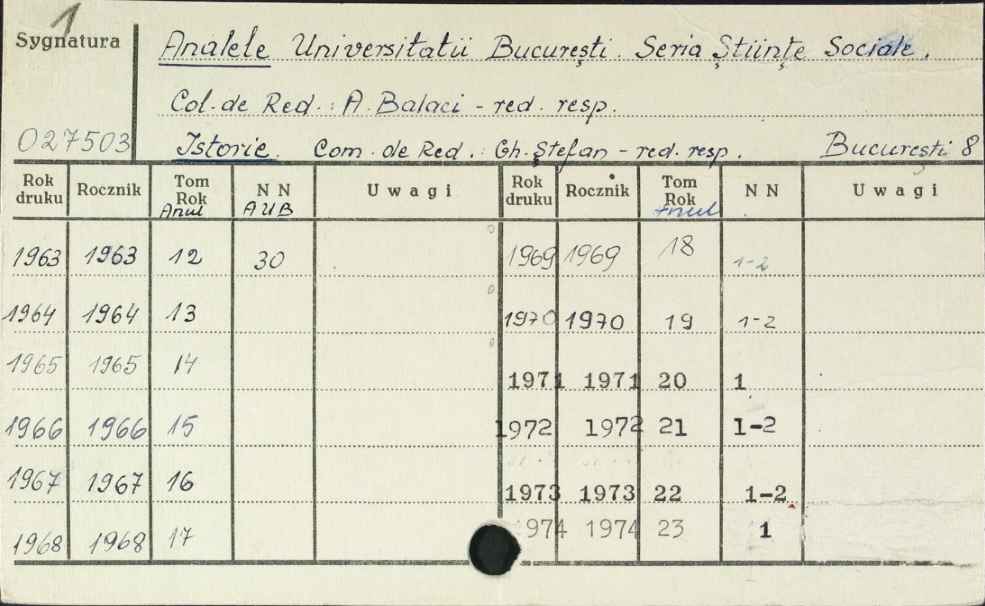 1
Sygnatura
Analele Universitatii București. Seria Științe Sociale.
Col. de Red.: A. Balaci - red. resp.
027503 Istorie. Com. de Red.: Gh. Ștefan - red. resp. București 8
Rok druku Rocznik Tom Rok Anul N N AUB Uwagi Rok druku Rocznik Tom Rok Anul N N Uwagi
1963 1963 12 30 1969 1969 18 1-2
1964 1964 13 1970 1970 19 1-2
1965 1965 14 1971 1971 20 1
1966 1966 15 1972 1972 21 1-2
1967 1967 16 1973 1973 22 1-2
1968 1968 17 1974 1974 23 1